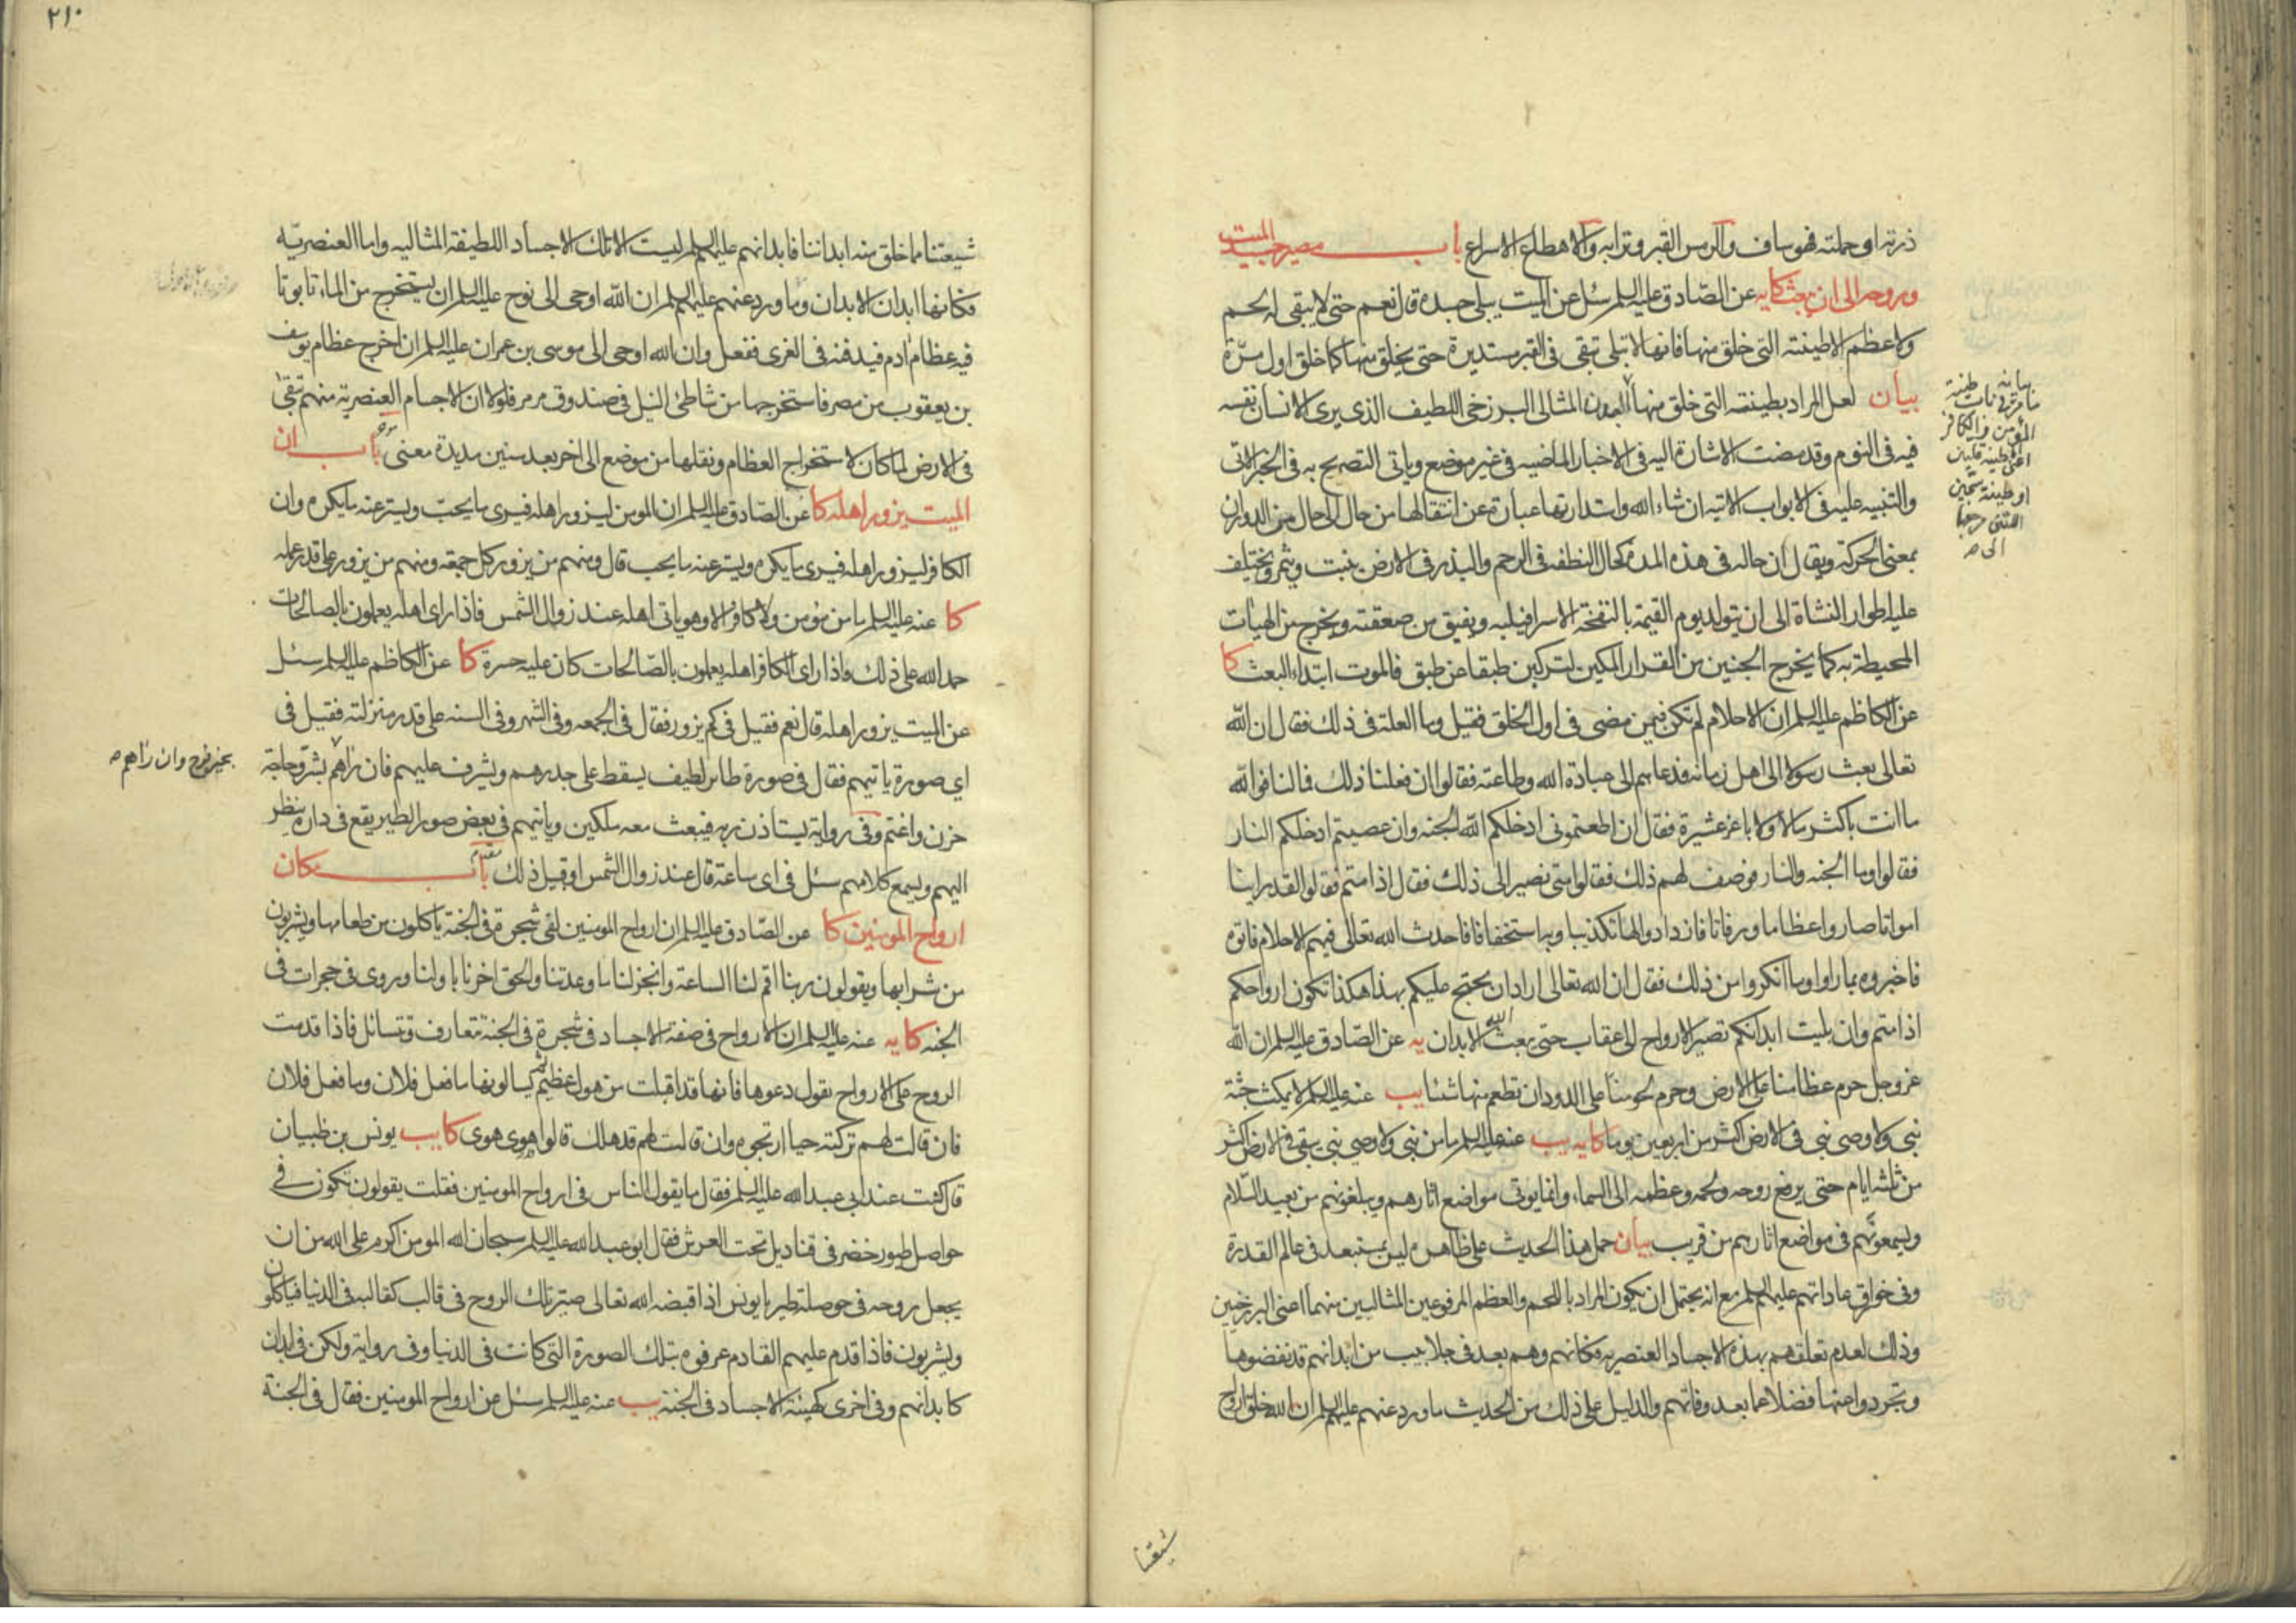 ذرته او حملته فهو ساف والرمس القبر وترابه والاهطاع الاسراع باب مصير جسد الميت
وروحه الى ان يبعث كا يه عن الصادق عليه السلم سئل عن الميت يبلى جسده قال نعم حتى لا يبقى له لحم
ولا عظم الا طينته التي خلق منها فانها لا تبلى تبقى في القبر مستديرة حتى يخلق منها كما خلق اول مرّة
بيان لعل المراد بطينته التي خلق منها البدن المثالى البرزخى اللطيف الذي يرى الانسان نفسه
فيه في النوم وقد مضت الاشارة اليه في الاخبار الماضيه في غير موضع وياتى التصريح به في الخبر الاتى
والتنبيه عليه في الابواب الاتيه ان شاء الله واستدارتها عبارة عن انتقالها من حال الى حال من الدوران
بمعنى الحركة ويقال ان حاله في هذه المدة كحال النطفه في الرحم والبذر في الارض ينبت ويثمر ويختلف
عليه اطوار النشاة الى ان يتولد يوم القيمة بالنفخة الاسرافيليه ويفيق من صعقته ويخرج من الهيات
المحيطة به كما يخرج الجنين من القرار المكين لتركبن طبقا عن طبق فالموت ابتداء البعث كا
عن الكاظم عليه السلم ان الاحلام لم تكن فيمن مضى في اول الخلق فقيل وما العلة في ذلك فقال ان الله
تعالى بعث رسولا الى اهل زمانه فدعاهم الى عبادة الله وطاعته فقالوا ان فعلنا ذلك فما لنا فوالله
ما انت باكثرنا مالا ولا باعزنا عشيرة فقال ان اطعتموني ادخلكم الله الجنه وان عصيتم ادخلكم النار
فقالوا وما الجنه والنار فوصف لهم ذلك فقالوا متى نصير الى ذلك فقال اذا متم فقالوا لقد راينا
امواتا صاروا عظاما ورفاتا فازدادوا لها تكذيبا وبها استخفافا فاحدث الله تعالى فيهم الاحلام فاتوه
فاخبروه بما راوا وما انكروا من ذلك فقال ان الله تعالى اراد ان يحتج عليكم بهذا هكذا تكون ارواحكم
اذا متم وان بليت ابدانكم تصير الارواح الى عقاب حتى يبعث الله الابدان يه عن الصادق عليه السلم ان الله
عز وجل حرم عظامنا على الارض وحرم لحومنا على الدود ان تطعم منها شئا يب عنه عليه السلم لا يمكث جثة
نبى ولا وصى نبى في الارض اكثر من اربعين يوما كا يه يب عنه عليه السلم ما من نبى ولا وصى نبى يبقى في الارض اكثر
من ثلثة ايام حتى يرفع روحه ولحمه وعظمه الى السماء وانما يوتى مواضع اثارهم ويبلغونهم من بعيد السّلام
ويسمعونهم في مواضع اثارهم من قريب بيان حمل هذا الحديث على ظاهره ليس بمستبعد في عالم القدرة
وفي خوارق عاداتهم عليهم السلم مع انه يحتمل ان يكون المراد باللحم والعظم المرفوعين المثاليين منهما اعنى البرزخيين
وذلك لعدم تعلقهم بهذه الاجساد العنصريه فكانهم وهم بعد في جلابيب من ابدانهم قد نفضوها
وتجردوا عنها فضلا عما بعد وفاتهم والدليل على ذلك من الحديث ما ورد عنهم عليهم السلم ان الله خلق ارواح
شيعتنا
المؤمن والكافر
اعنى طينة عليين
او طينة سجين
٢١٠
شيعتنا مما خلق منه ابداننا فابدانهم عليهم السلم ليست الا تلك الاجساد اللطيفة المثاليه واما العنصريّه
فكانها ابدان الابدان وما ورد عنهم عليهم السلم ان الله اوحى الى نوح عليه السلم ان يستخرج من الماء تابوتا
فيه عظام ادم فيدفنه في الغرى ففعل وان الله اوحى الى موسى بن عمران عليه السلم ان اخرج عظام يوسف
بن يعقوب من مصر فاستخرجها من شاطئ النيل في صندوق مرمر فلولا ان الاجسام العنصرية منهم تبقى
في الارض لما كان لاستخراج العظام ونقلها من موضع الى اخر بعد سنين مديدة معنى باب ان
الميت يزور اهله كا عن الصادق عليه السلم ان المومن ليزور اهله فيرى ما يحبّ ويستر عنه ما يكره وان
الكافر ليزور اهله فيرى ما يكره ويستر عنه ما يحب قال ومنهم من يزور كل جمعه ومنهم من يزور على قدر عمله
كا عنه عليه السلم ما من مؤمن ولا كافر الا وهو ياتى اهله عند زوال الشمس فاذا راى اهله يعملون بالصالحات
حمد الله على ذلك واذا راى الكافر اهله يعملون بالصّالحات كان عليه حسرة كا عن الكاظم عليه السلم سئل
عن الميت يزور اهله قال نعم فقيل في كم يزور فقال في الجمعه وفي الشهر وفي السنه على قدر منزلته فقيل في
اي صورة ياتيهم فقال في صورة طائر لطيف يسقط على جدرهم ويشرف عليهم فان راهم بشرّ وحاجة
حزن واغتم وفي رواية يستاذن ربه فيبعث معه ملكين وياتيهم في بعض صور الطير يقع في داره ينظر
اليهم ويسمع كلامهم سئل في اى ساعة قال عند زوال الشمس او قبل ذلك باب مكان
ارواح المومنين كا عن الصّادق عليه السلم ان ارواح المومنين لفى شجرة في الجنة ياكلون من طعامها ويشربون
من شرابها ويقولون ربنا اقم لنا الساعة وانجز لنا ما وعدتنا والحق اخرنا باولنا وروى في حجرات في
الجنه كا يه عنه عليه السلم ان الارواح في صفة الاجساد في شجرة في الجنة تعارف وتسائل فاذا قدمت
الروح على الارواح يقول دعوها فانها قد اقبلت من هول عظيم ثم يسالونها ما فعل فلان وما فعل فلان
فان قالت لهم تركته حيا ارتجوه وان قالت لهم قد هلك قالوا هوى هوى كا يب يونس بن ظبيان
قال كنت عند ابى عبد الله عليه السلم فقال ما يقول الناس في ارواح المومنين فقلت يقولون تكون في
حواصل طيور خضر في قناديل تحت العرش فقال ابو عبد الله عليه السلم سبحان الله المومن اكرم على الله من ان
يجعل روحه في حوصلة طير يا يونس اذا قبضه الله تعالى صيّر تلك الروح في قالب كقالبه في الدنيا فياكلون
ويشربون فاذا قدم عليهم القادم عرفوه بتلك الصورة التي كانت في الدنيا وفي رواية ولكن في ابدان
كابدانهم وفي اخرى كهيئة الاجساد في الجنة يب عنه عليه السلم سئل عن ارواح المومنين فقال في الجنة
بخير فرح وان راهم